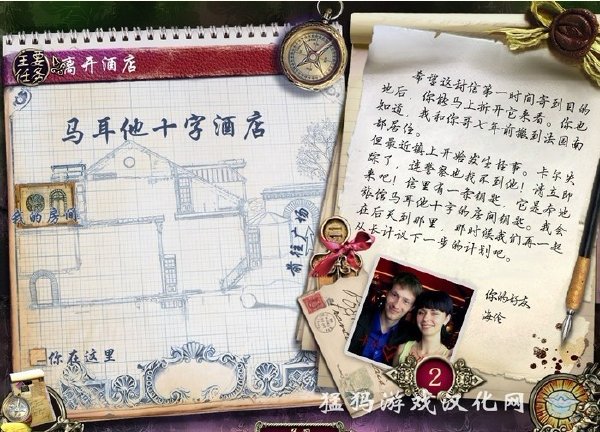 主要任务
离开酒店
马耳他十字酒店
我的房间
前往广场
你在这里
希望这封信第一时间寄到目的
地后，你能马上拆开它来看。你也
知道，我和你哥七年前搬到法国南
部居住。
但最近镇上开始发生怪事。卡尔失
踪了，连警察也找不到他！请立即
来吧！信里有一条钥匙，它是本地
旅馆马耳他十字的房间钥匙。我会
在后天到那里，那时候我们再一起
从长计议下一步的计划吧。
你的好友
海伦
2
猛犸游戏汉化网